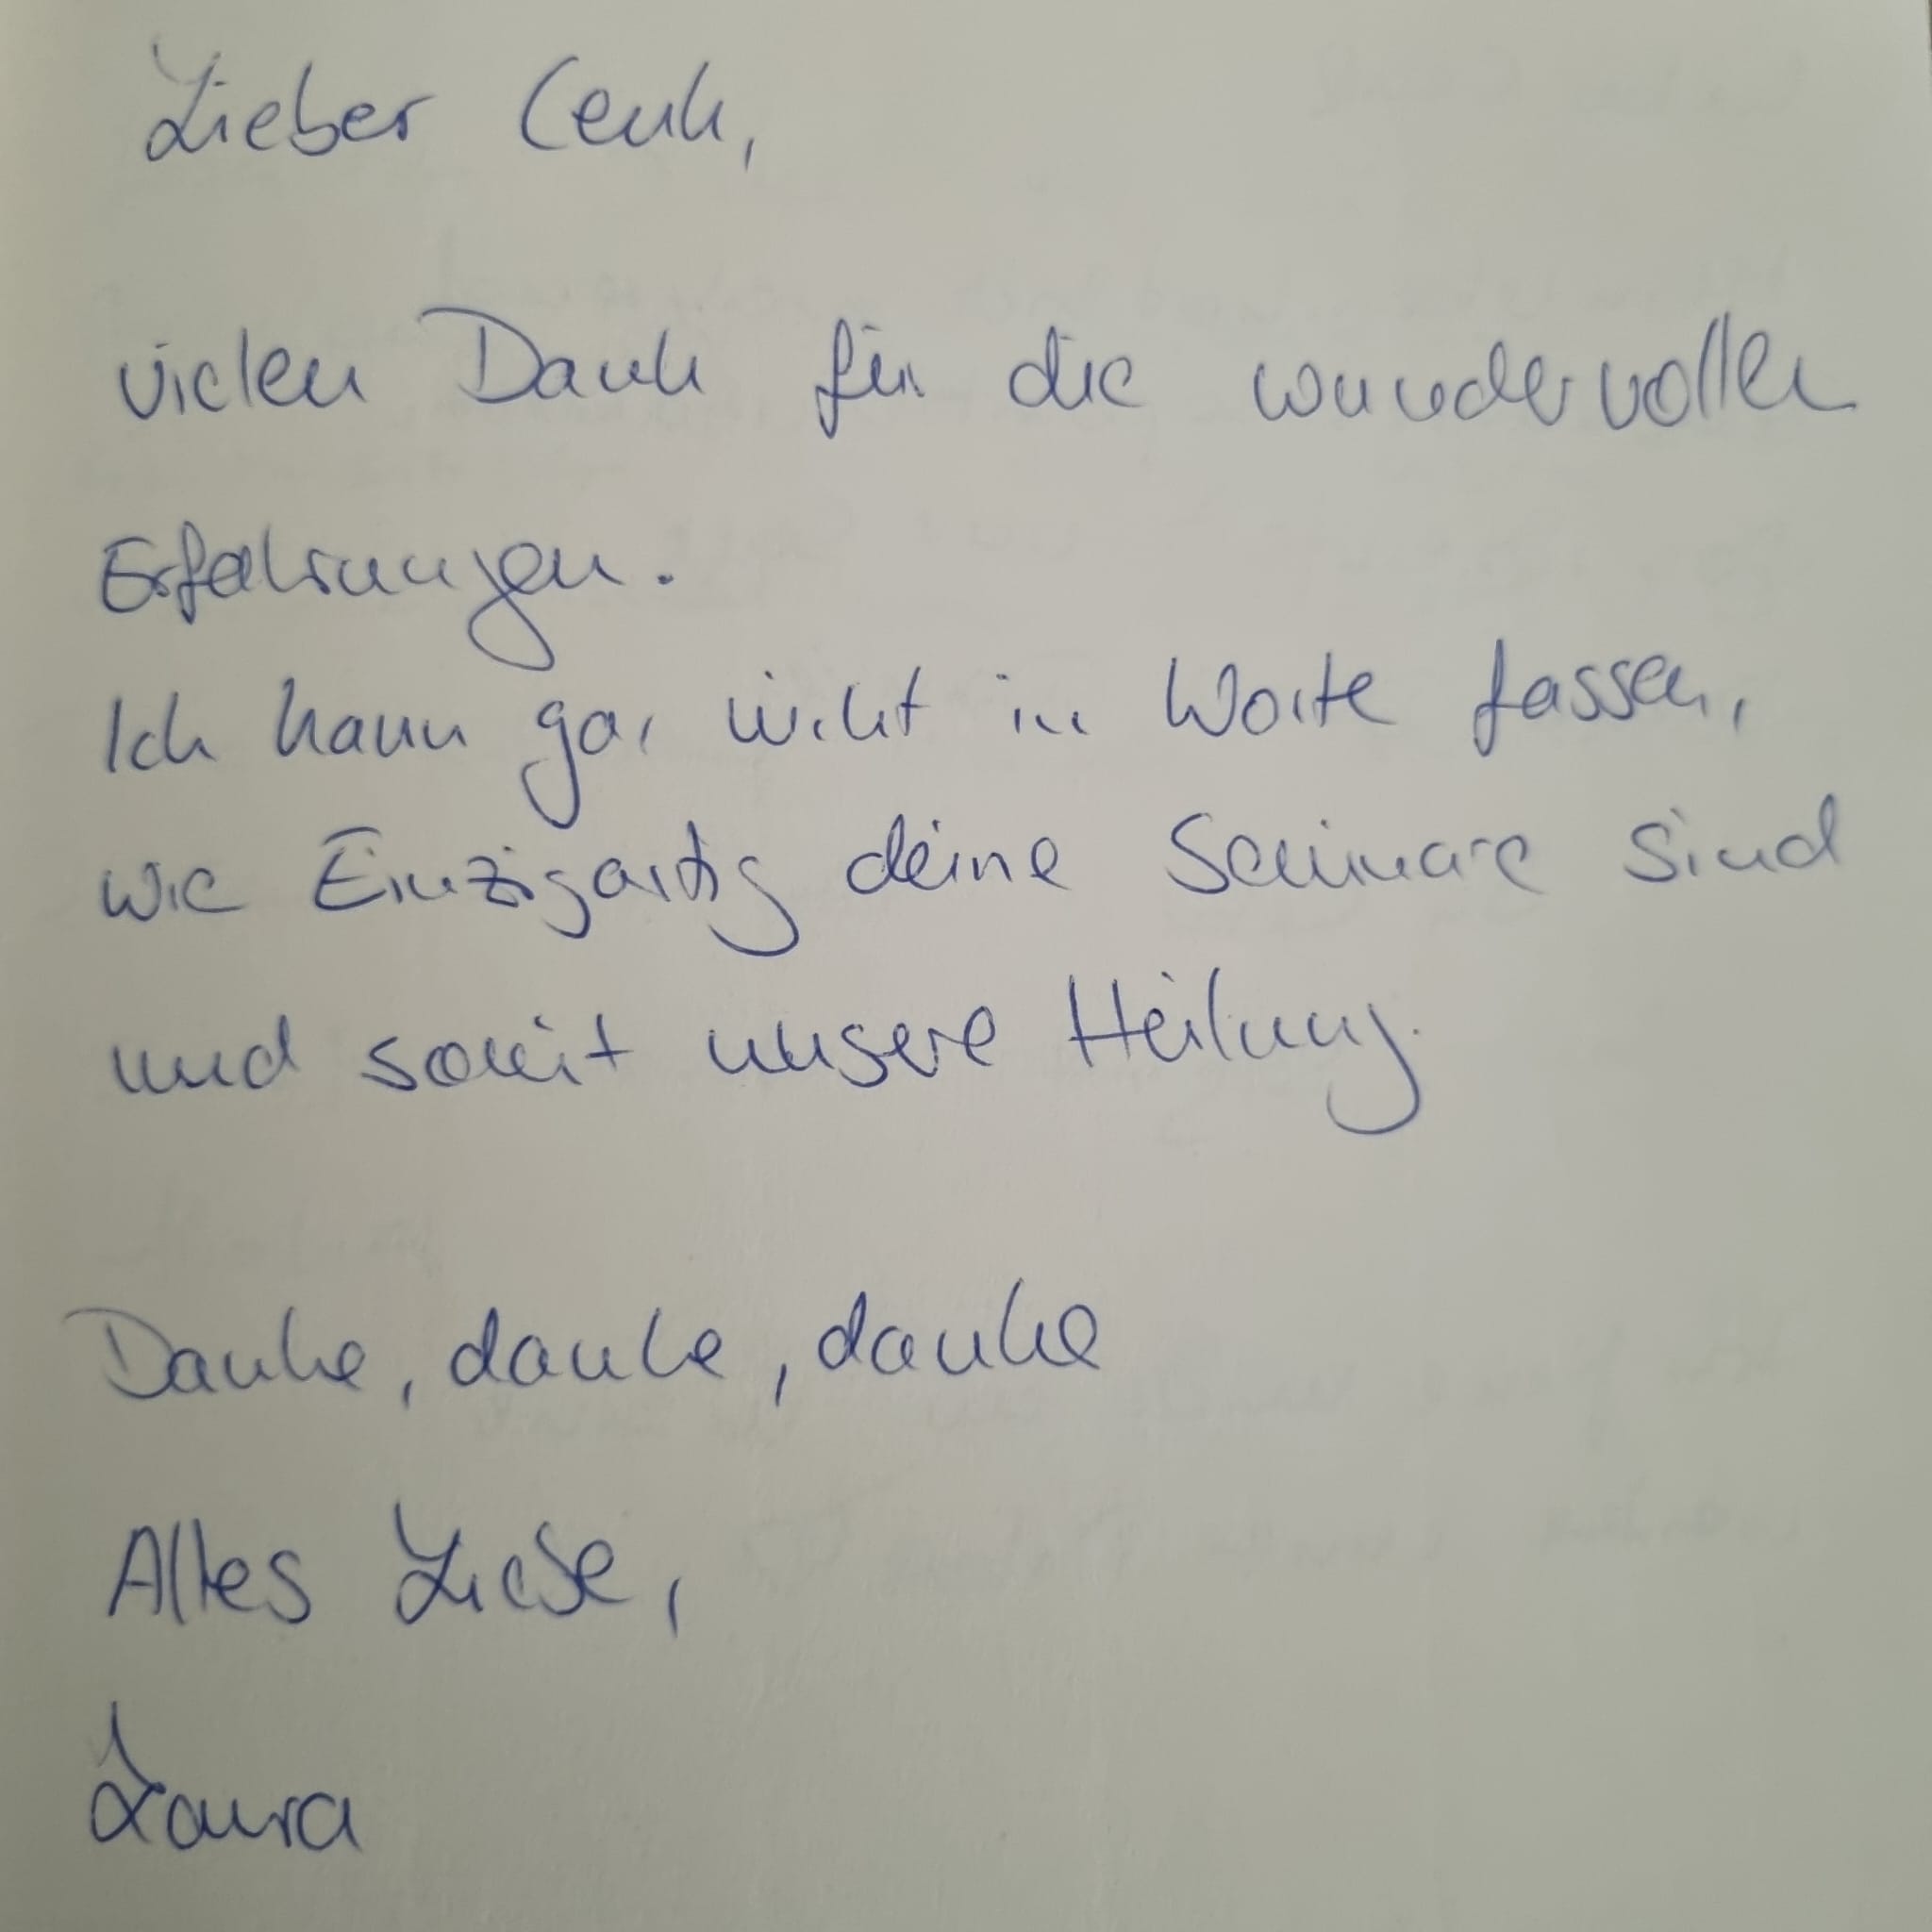 Lieber Cenk,
vielen Dank für die wundervollen
Erfahrungen.
Ich kann gar nicht in Worte fassen,
wie Einzigartig deine Seminare sind
und somit unsere Heilung.
Danke, danke, danke
Alles Liebe,
Laura